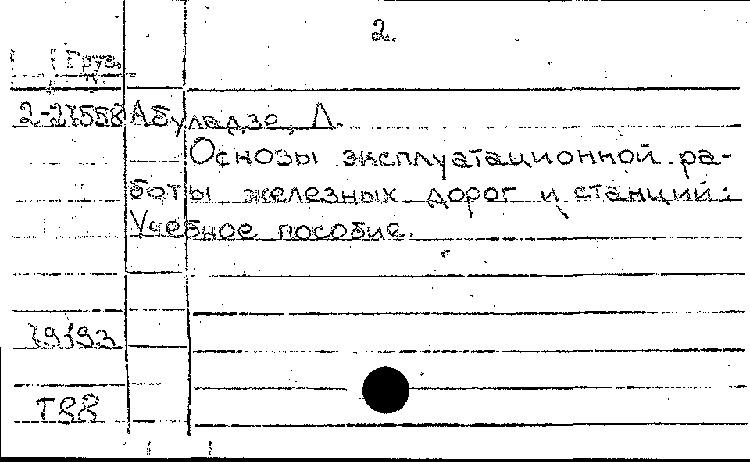 2.
Груз.
2-27558 Абуладзе, Л.
Основы эксплуатационной ра-
боты железных дорог и станций:
Учебное пособие.
T88